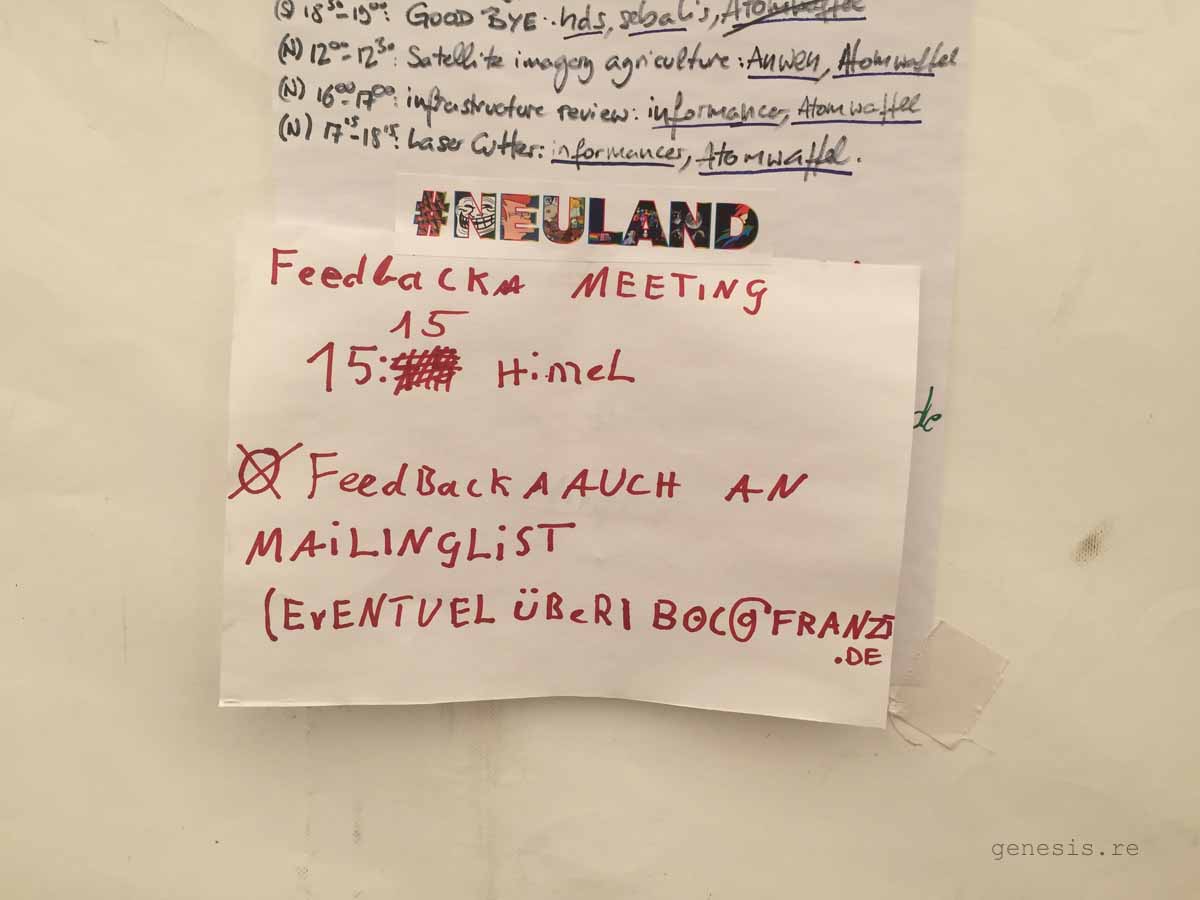 (S) 18³⁰-19⁰⁰: GOOD BYE: hds, sebalis, Atomwaffel
(N) 12⁰⁰-12³⁰: Satellite imagery agriculture: Anwen, Atomwaffel
(N) 16⁰⁰-17⁰⁰: infrastructure review: informancer, Atomwaffel
(N) 17¹⁵-18¹⁵: Laser Cutter: informancer, Atomwaffel.
#NEULAND
FeedbackA MEETING
15
15: HimeL
de
FeedBackA AUCH AN
MAiLINGLiST
(EvENTUEL ÜBeRI BOC@FRANZI
.DE
genesis.re